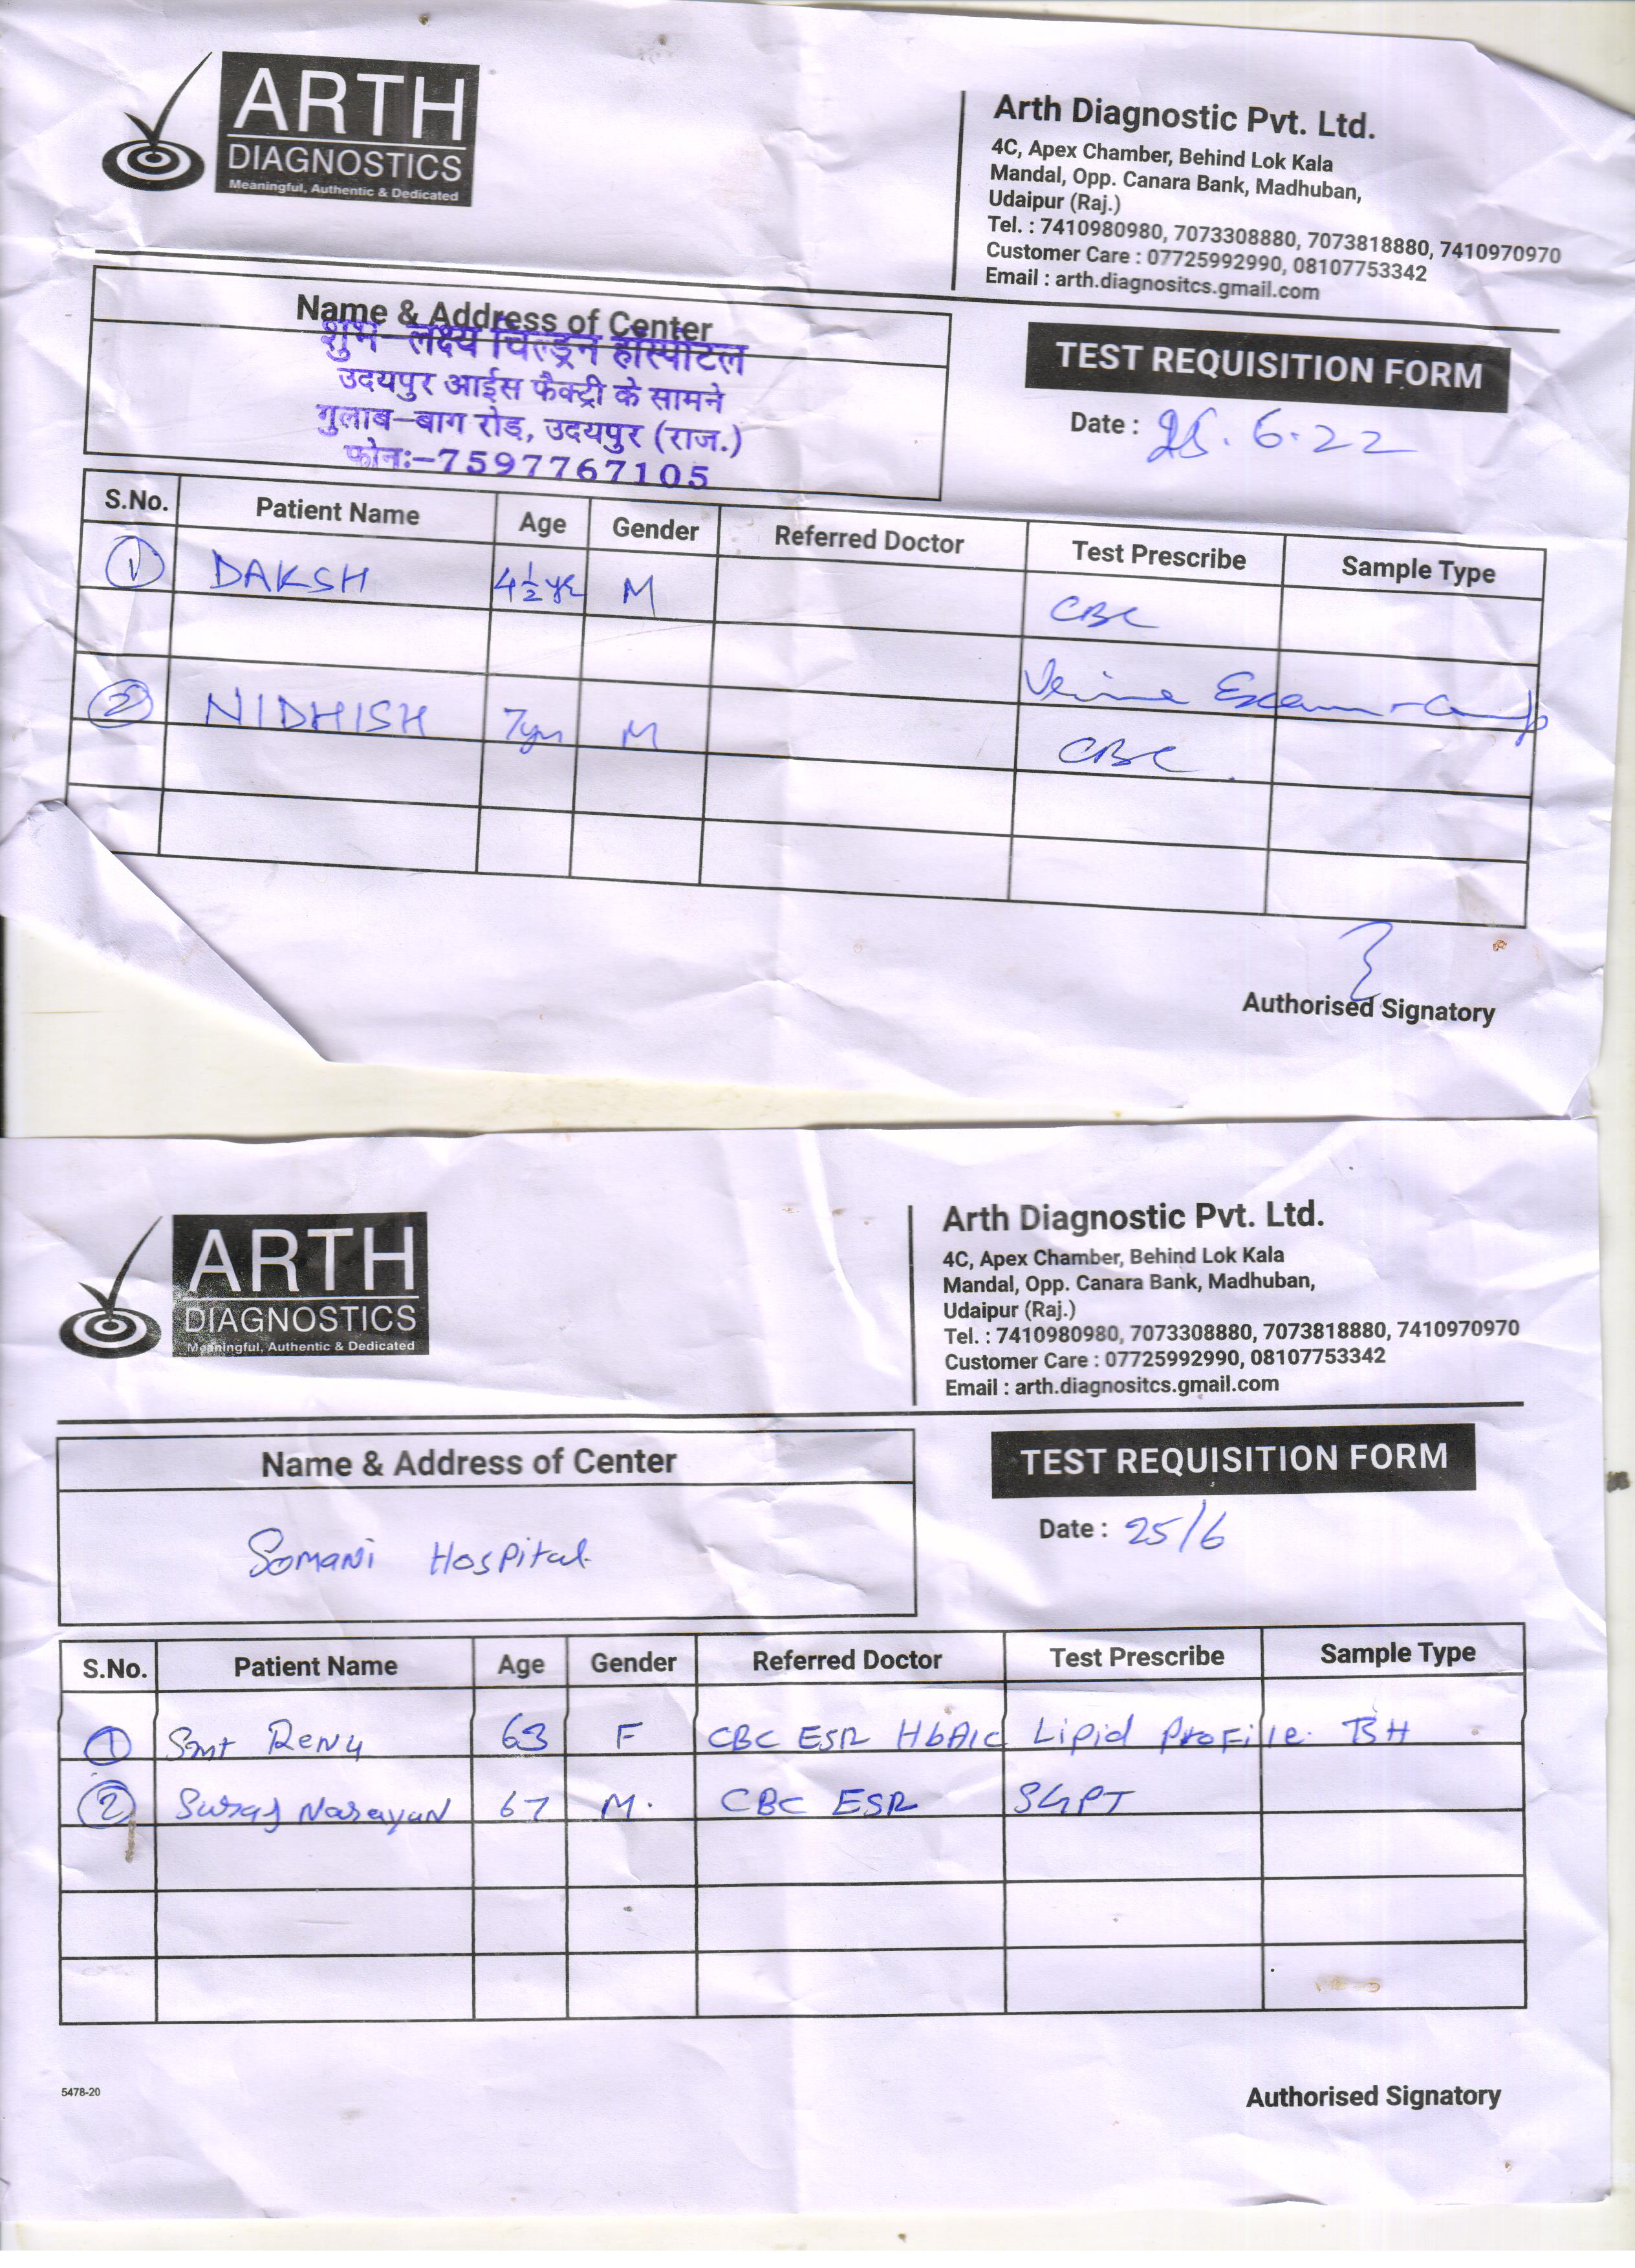 ARTH
DIAGNOSTICS
Meaningful, Authentic & Dedicated
Arth Diagnostic Pvt. Ltd.
4C, Apex Chamber, Behind Lok Kala
Mandal, Opp. Canara Bank, Madhuban,
Udaipur (Raj.)
Tel. : 7410980980, 7073308880, 7073818880, 7410970970
Customer Care : 07725992990, 08107753342
Email : arth.diagnositcs.gmail.com
Name & Address of Center
शुभ-लक्ष्य चिल्ड्रन हॉस्पीटल
उदयपुर आईस फैक्ट्री के सामने
गुलाब-बाग रोड़, उदयपुर (राज.)
फोनः-7597767105
TEST REQUISITION FORM
Date : 25.6.22
S.No. Patient Name Age Gender Referred Doctor Test Prescribe Sample Type
1 DAKSH 4½ yr M CBC
Urine Exam
2 NIDHISH 7yrs M CBC
Authorised Signatory
ARTH
DIAGNOSTICS
Meaningful, Authentic & Dedicated
Arth Diagnostic Pvt. Ltd.
4C, Apex Chamber, Behind Lok Kala
Mandal, Opp. Canara Bank, Madhuban,
Udaipur (Raj.)
Tel. : 7410980980, 7073308880, 7073818880, 7410970970
Customer Care : 07725992990, 08107753342
Email : arth.diagnositcs.gmail.com
Name & Address of Center
Somani Hospital
TEST REQUISITION FORM
Date : 25/6
S.No. Patient Name Age Gender Referred Doctor Test Prescribe Sample Type
1 Smt Renu 63 F CBC ESR HbA1c Lipid Profile. TSH
2 Suraj Narayan 67 M. CBC ESR SGPT
5478-20
Authorised Signatory